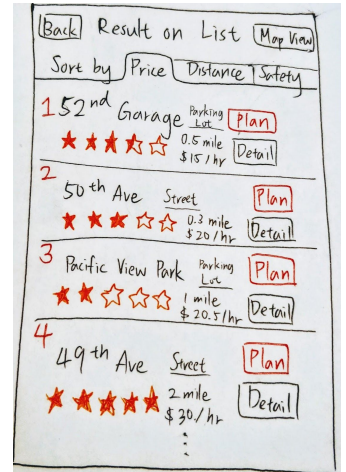 Back Result on List Map View
Sort by Price Distance Safety
1 52nd Garage Parking Lot Plan
0.5 mile
$15/hr Detail
2
50th Ave Street Plan
0.3 mile
$20/hr Detail
3
Pacific View Park Parking Lot Plan
1 mile
$20.5/hr Detail
4
49th Ave Street Plan
2 mile
$30/hr Detail